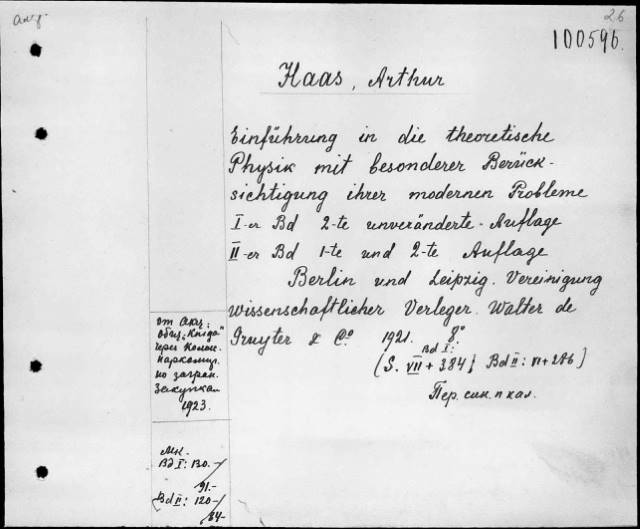 26
100596.
Haas, Arthur
Einführung in die theoretische
Physik mit besonderer Berück-
sichtigung ihrer modernen Probleme
I-er Bd 2-te unveränderte-Auflage
II-er Bd 1-te und 2-te Auflage
Berlin und Leipzig. Vereinigung
wissenschaftlicher Verleger. Walter de
Gruyter & Co. 1921. 8°
Bd I:
(S. VII + 384; Bd II: VI + 286)
Пер. син. п кал.
от Акц.
Общ. "Книга"
через Комис.
Наркомпр.
по загран.
Закупкам
1923.
Мк.
Bd I: 130.-/
91.-
(Bd II: 120-/
84-